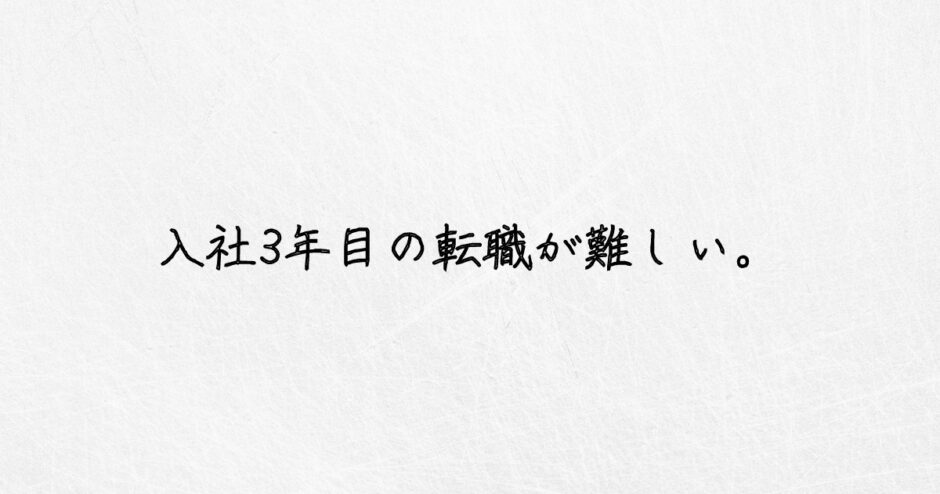 入社3年目の転職が難しい。